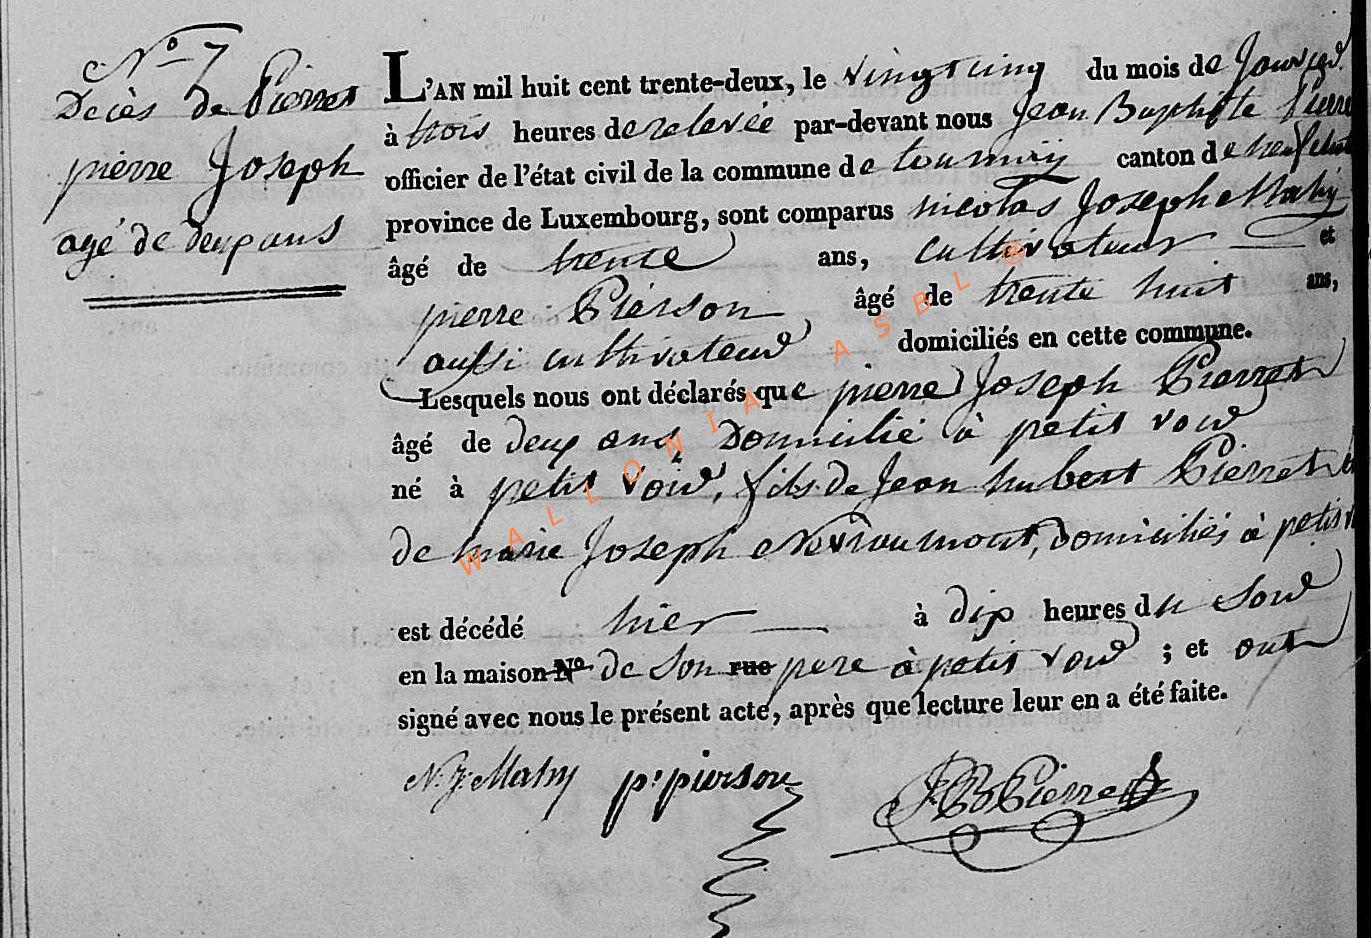 N° 7
Décès de Pierret
pierre Joseph
agé de deux ans
L'AN mil huit cent trente-deux, le vingt cinq du mois de Janvier
à trois heures de relevée par-devant nous Jean Baptiste Pierre
officier de l'état civil de la commune de tournay canton de neufchat
province de Luxembourg, sont comparus nicolas Joseph Mahy
âgé de trente ans, cultivateur et
pierre Pierson âgé de trente huit ans,
aussi cultivateur domiciliés en cette commune.
Lesquels nous ont déclarés que pierre Joseph Pierret
âgé de deux ans, Domicilié à petit voir
né à petit voir, fils de Jean hubert Pierret
de marie Joseph Nevraumont, domiciliés à petit
est décédé hier à dix heures du Soir
en la maison N° de Son rue pere à petit voir ; et ont
signé avec nous le présent acte, après que lecture leur en a été faite.
N. J. Mahy p. pierson J B Pierret
WALLONIA ASBL ®